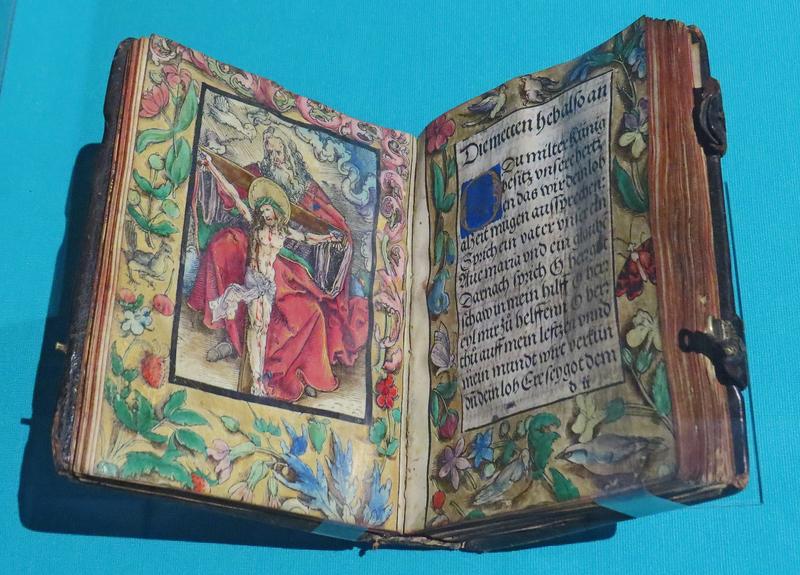 Die metten heb also an
Du milter künig
besitz unsere hertz
en das wir dein lob
alzeit mügen aussprechen.
Sprich ein vater unser ein
Aue maria und ein glaubē
Darnach sprich
schaw in mein hilff O herr
eyl mir zů helffenn O herr
thů auff mein lefftzen unnd
mein mundt wirt verkün
dē dein lob Ere sey got dem